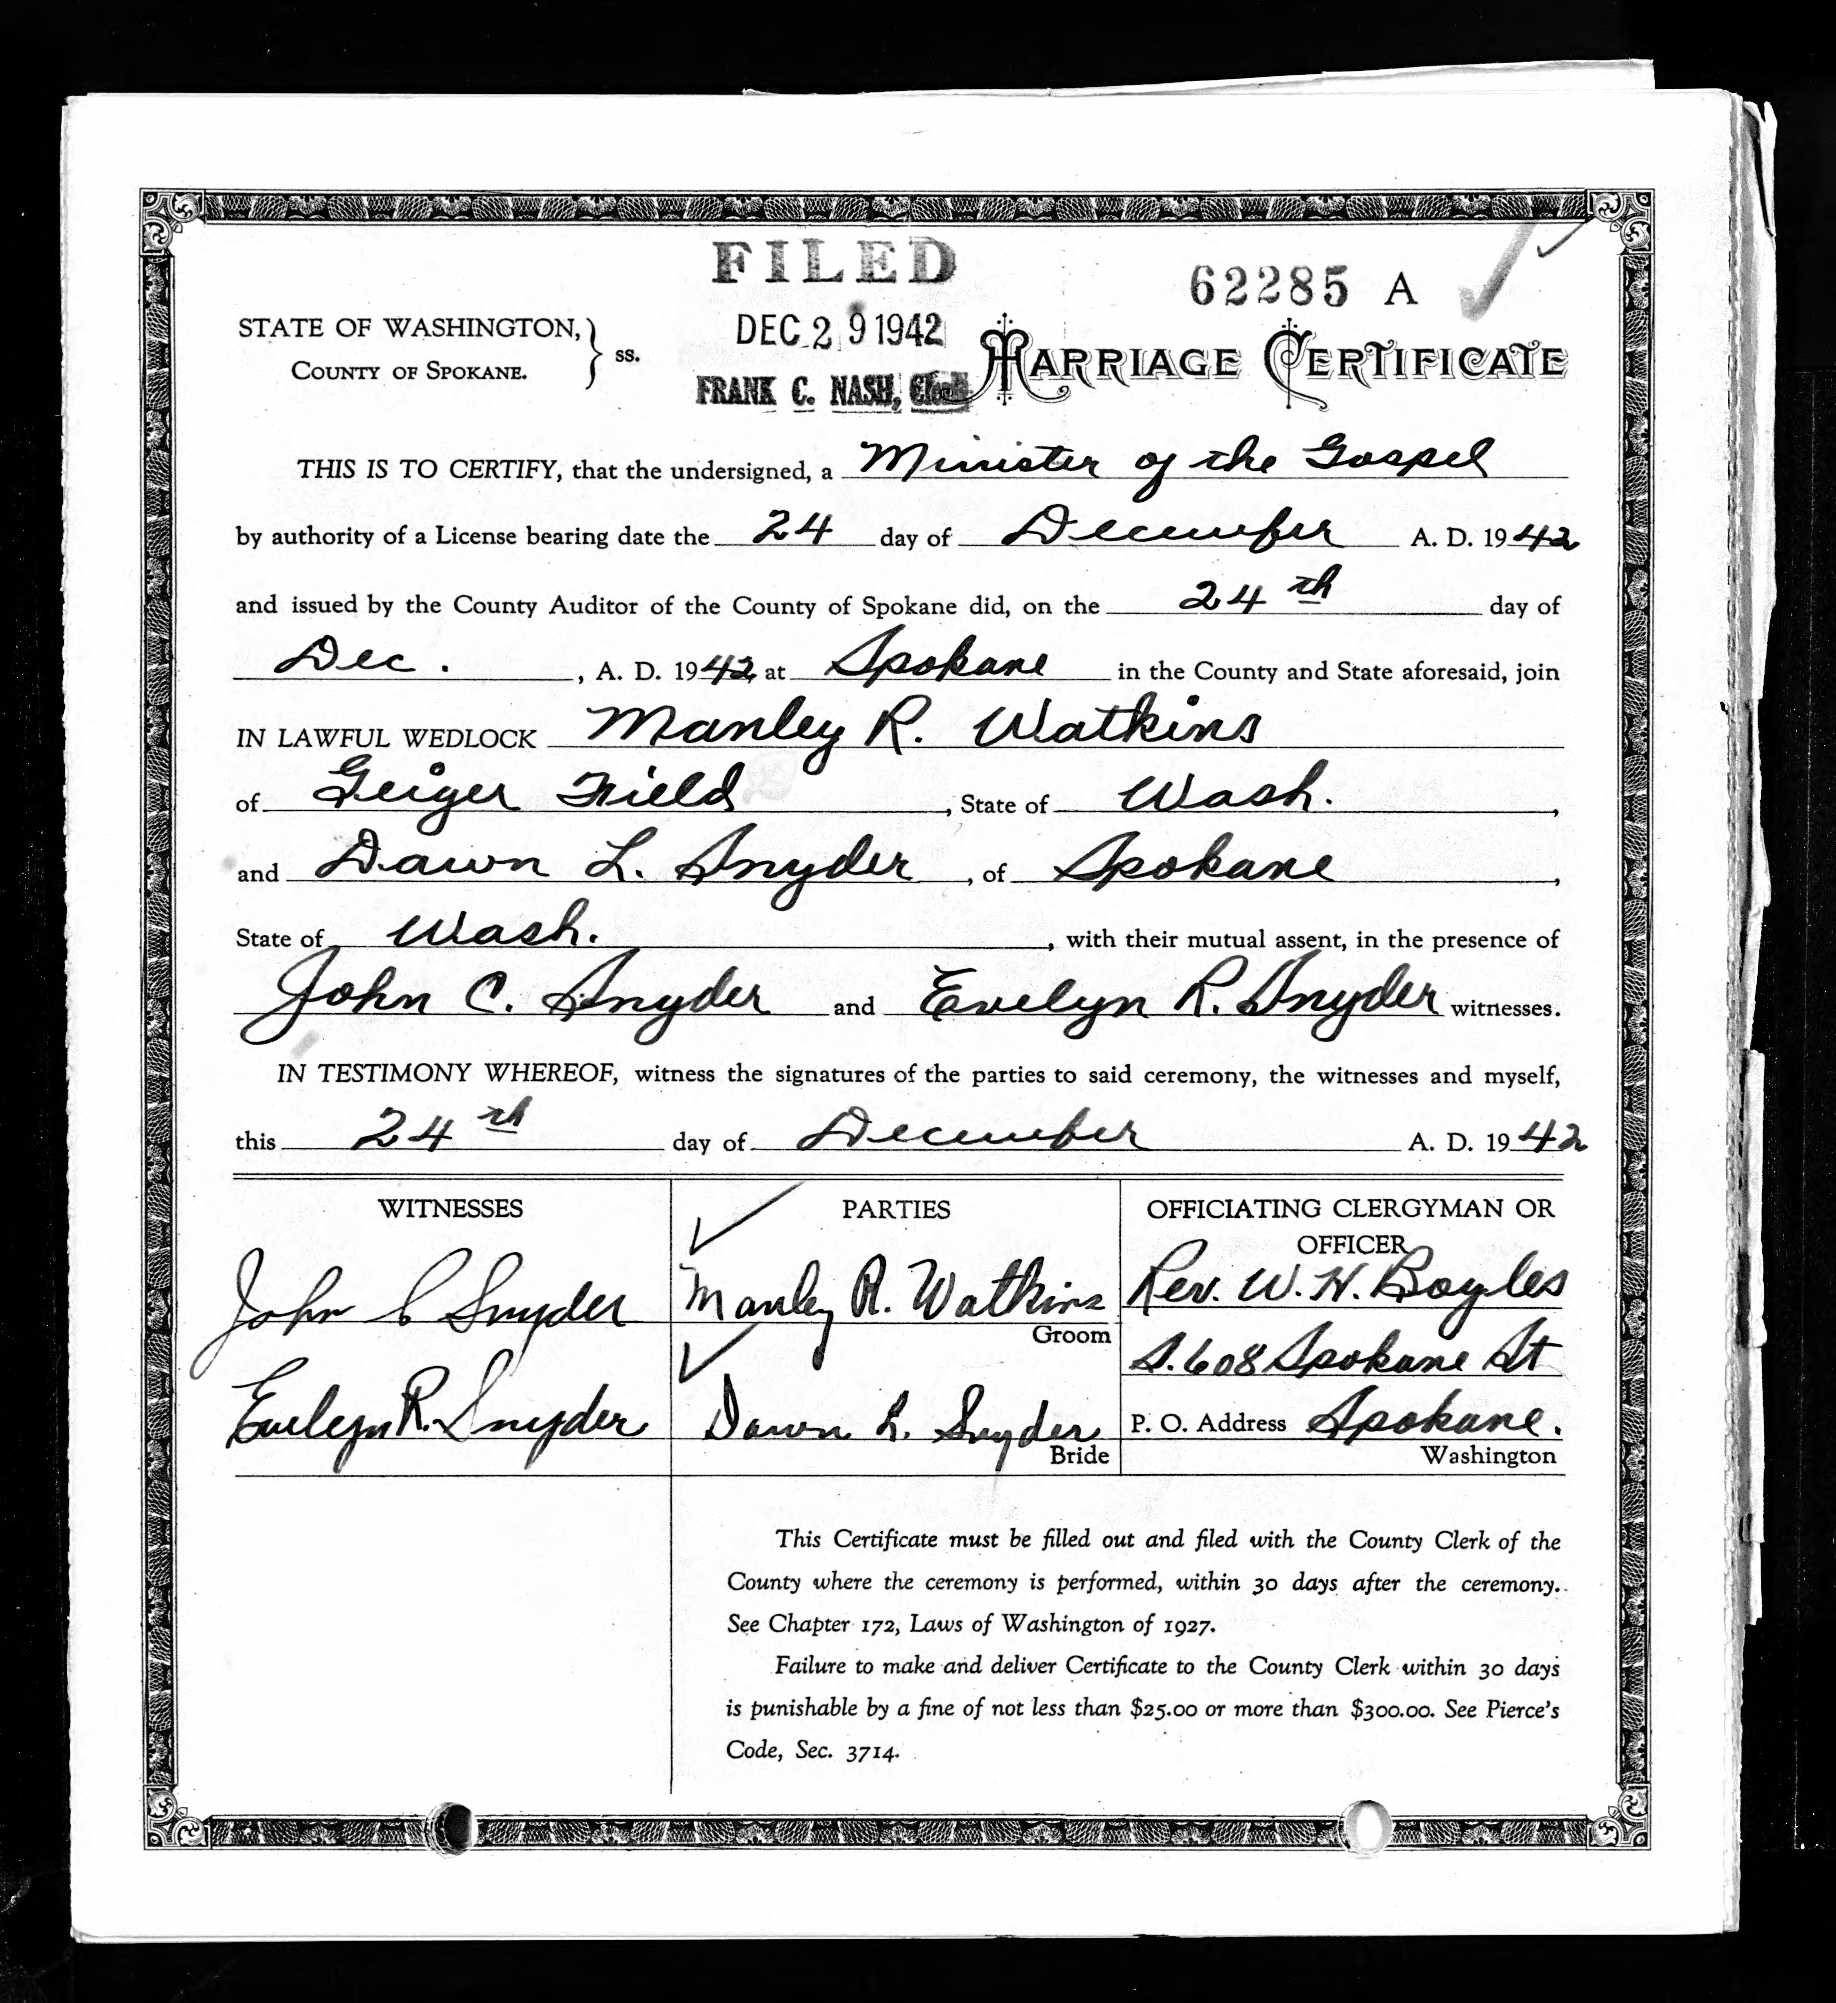 FILED
62285 A
STATE OF WASHINGTON, } ss.
DEC 29 1942
COUNTY OF SPOKANE.
FRANK C. NASH, Clerk
MARRIAGE CERTIFICATE
THIS IS TO CERTIFY, that the undersigned, a Minister of the Gospel
by authority of a License bearing date the 24 day of December A. D. 1942
and issued by the County Auditor of the County of Spokane did, on the 24th day of
Dec. , A. D. 1942, at Spokane in the County and State aforesaid, join
IN LAWFUL WEDLOCK Manley R. Watkins
of Geiger Field, State of Wash.,
and Dawn L. Snyder, of Spokane,
State of Wash., with their mutual assent, in the presence of
John C. Snyder and Evelyn R. Snyder witnesses.
IN TESTIMONY WHEREOF, witness the signatures of the parties to said ceremony, the witnesses and myself,
this 24th day of December A. D. 1942
WITNESSES
John C Snyder
Evelyn R. Snyder
PARTIES
Manley R. Watkins
Groom
Dawn L. Snyder
Bride
OFFICIATING CLERGYMAN OR
OFFICER
Rev. W. H. Boyles
S. 608 Spokane St
P. O. Address Spokane.
Washington
This Certificate must be filled out and filed with the County Clerk of the
County where the ceremony is performed, within 30 days after the ceremony.
See Chapter 172, Laws of Washington of 1927.
Failure to make and deliver Certificate to the County Clerk within 30 days
is punishable by a fine of not less than $25.00 or more than $300.00. See Pierce's
Code, Sec. 3714.